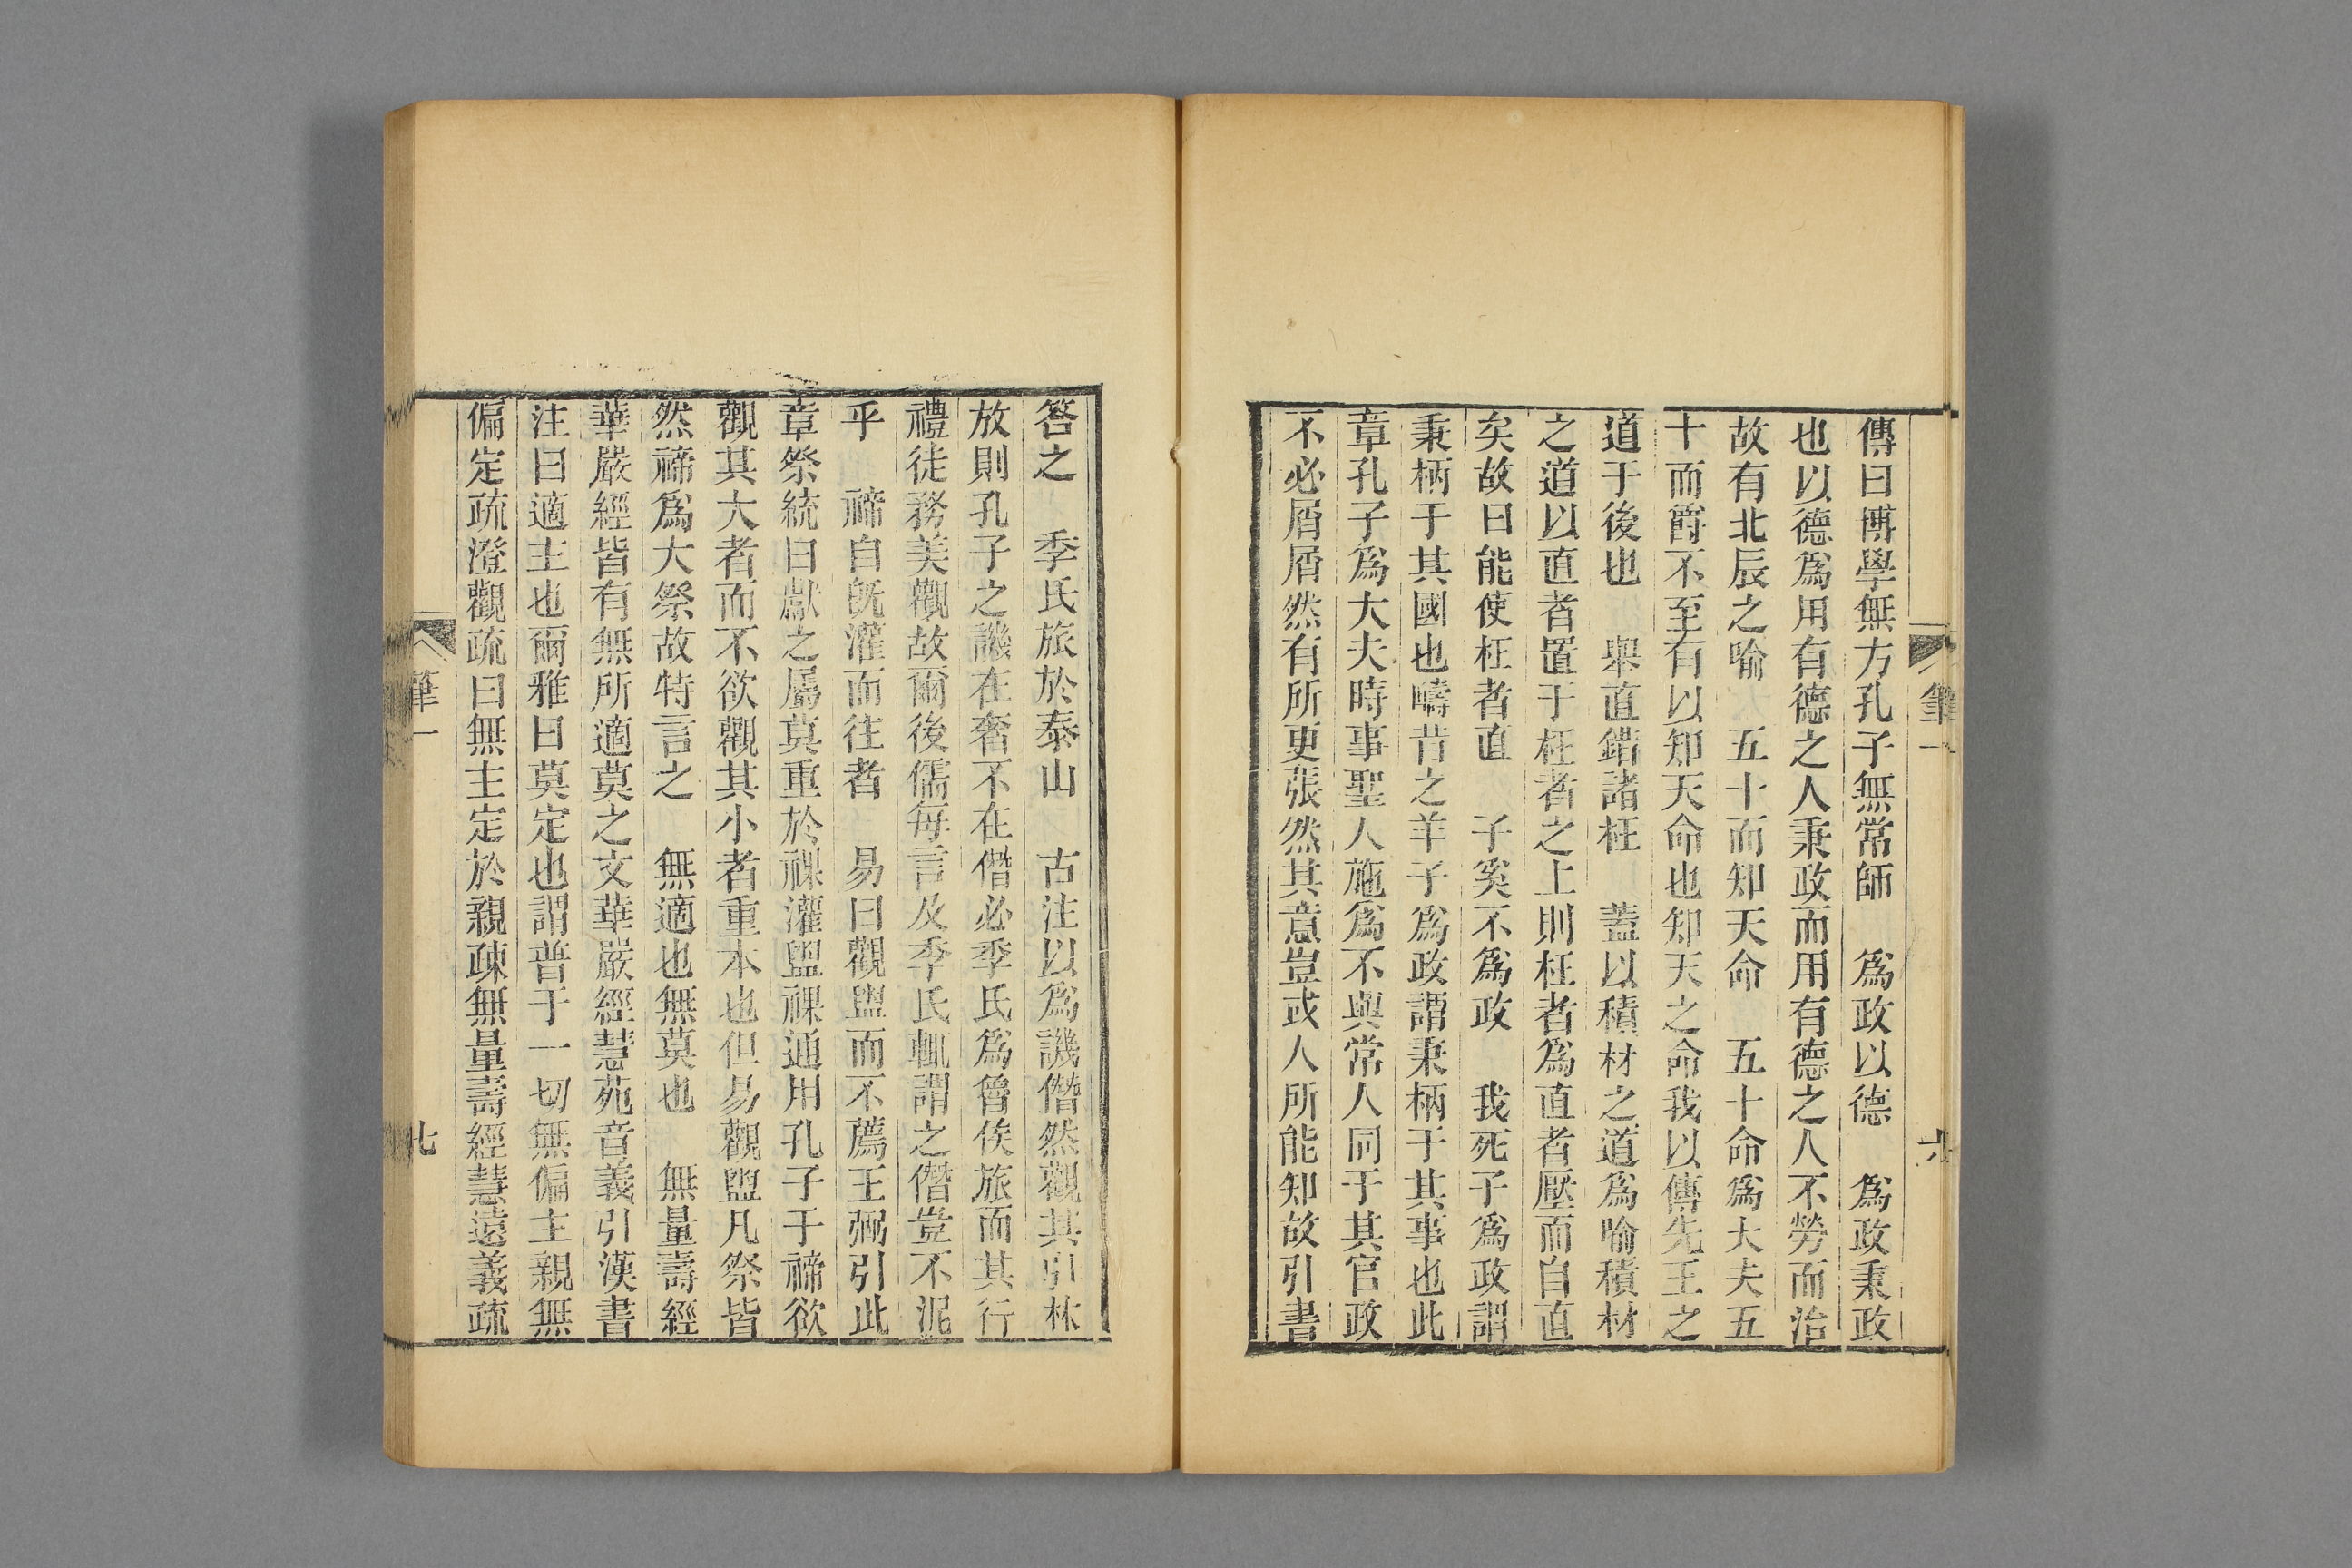 筆一
六
傳曰博學無方孔子無常師　爲政以德　爲政秉政
也以德爲用有德之人秉政而用有德之人不勞而治
故有北辰之喻　五十而知天命　五十命爲大夫五
十而爵不至有以知天命也知天之命我以傳先王之
道于後也　舉直錯諸枉　蓋以積材之道爲喻積材
之道以直者置于枉者之上則枉者爲直者壓而自直
矣故曰能使枉者直　子奚不爲政　我死子爲政謂
秉柄于其國也疇昔之羊子爲政謂秉柄于其事也此
章孔子爲大夫時事聖人施爲不與常人同于其官政
不必屑屑然有所更張然其意豈或人所能知故引書
答之　季氏旅於泰山　古注以爲譏僭然觀其引林
放則孔子之譏在奢不在僭必季氏爲魯侯旅而其行
禮徒務美觀故爾後儒每言及季氏輒謂之僭豈不泥
乎　禘自既灌而往者　易曰觀盥而不薦王弼引此
章祭統曰獻之屬莫重於祼灌盥祼通用孔子于禘欲
觀其大者而不欲觀其小者重本也但易觀盥凡祭皆
然禘爲大祭故特言之　無適也無莫也　無量壽經
華嚴經皆有無所適莫之文華嚴經慧苑音義引漢書
注曰適主也爾雅曰莫定也謂普于一切無偏主親無
偏定疏澄觀疏曰無主定於親疎無量壽經慧遠義疏
筆一
七